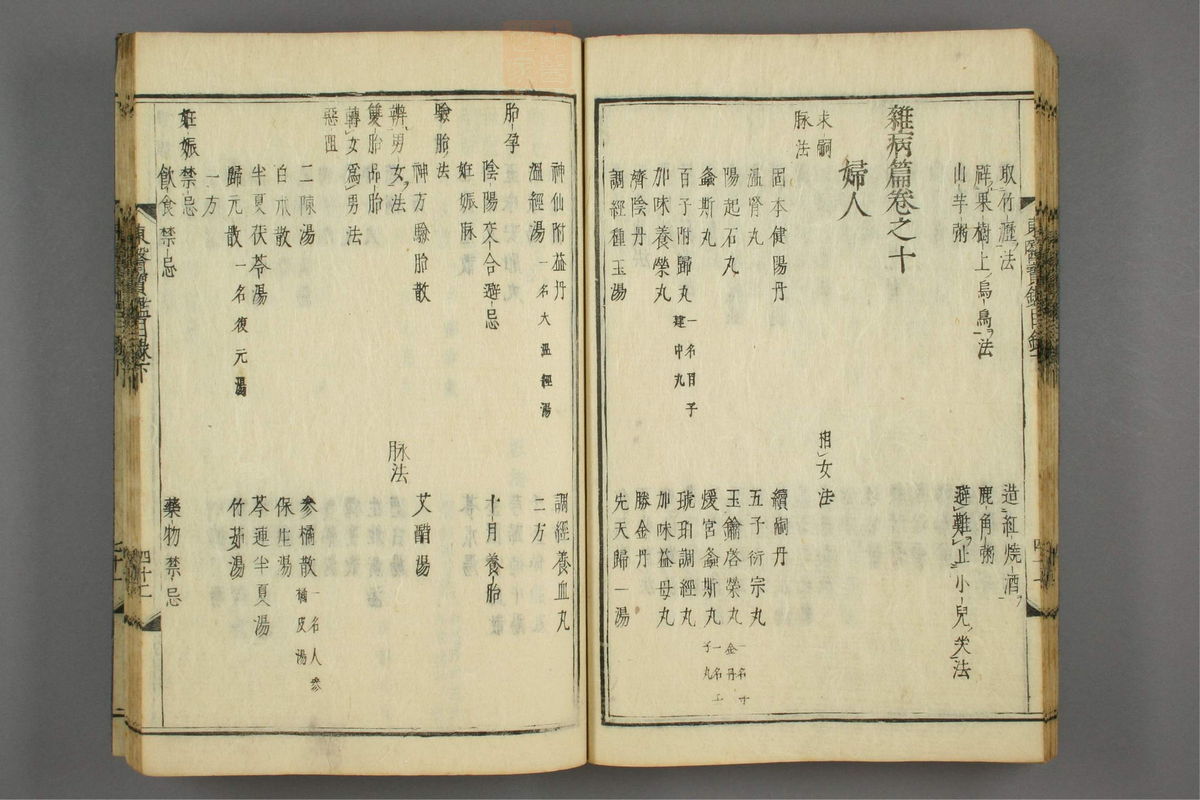 取竹瀝法
造紅燒酒
辟果樹上烏鳥法
鹿角粥
山芋粥
避難止小兒哭法
雜病篇卷之十
婦人
求嗣
相女法
脉法
固本健陽丹
續嗣丹
溫腎丸
五子衍宗丸
陽起石丸
玉鑰啓榮丸
螽斯丸
煖宮螽斯丸
百子附歸丸 一名百子建中丸
琥珀調經丸
加味養榮丸
加味益母丸
濟陰丹
勝金丹
調經種玉湯
先天歸一湯
神仙附益丹
調經養血丸
溫經湯 一名大溫經湯
二方
胎孕
陰陽交合避忌
十月養胎
妊娠脉
驗胎法
神方驗胎散
艾醋湯
辨男女法
脉法
雙胎品胎
轉女爲男法
惡阻
二陳湯
參橘散 一名人參橘皮湯
白朮散
保生湯
半夏茯苓湯
芩連半夏湯
歸元散 一名復元湯
竹茹湯
一方
妊娠禁忌
飮食禁忌
藥物禁忌
東醫寶鑑目錄下
四十二